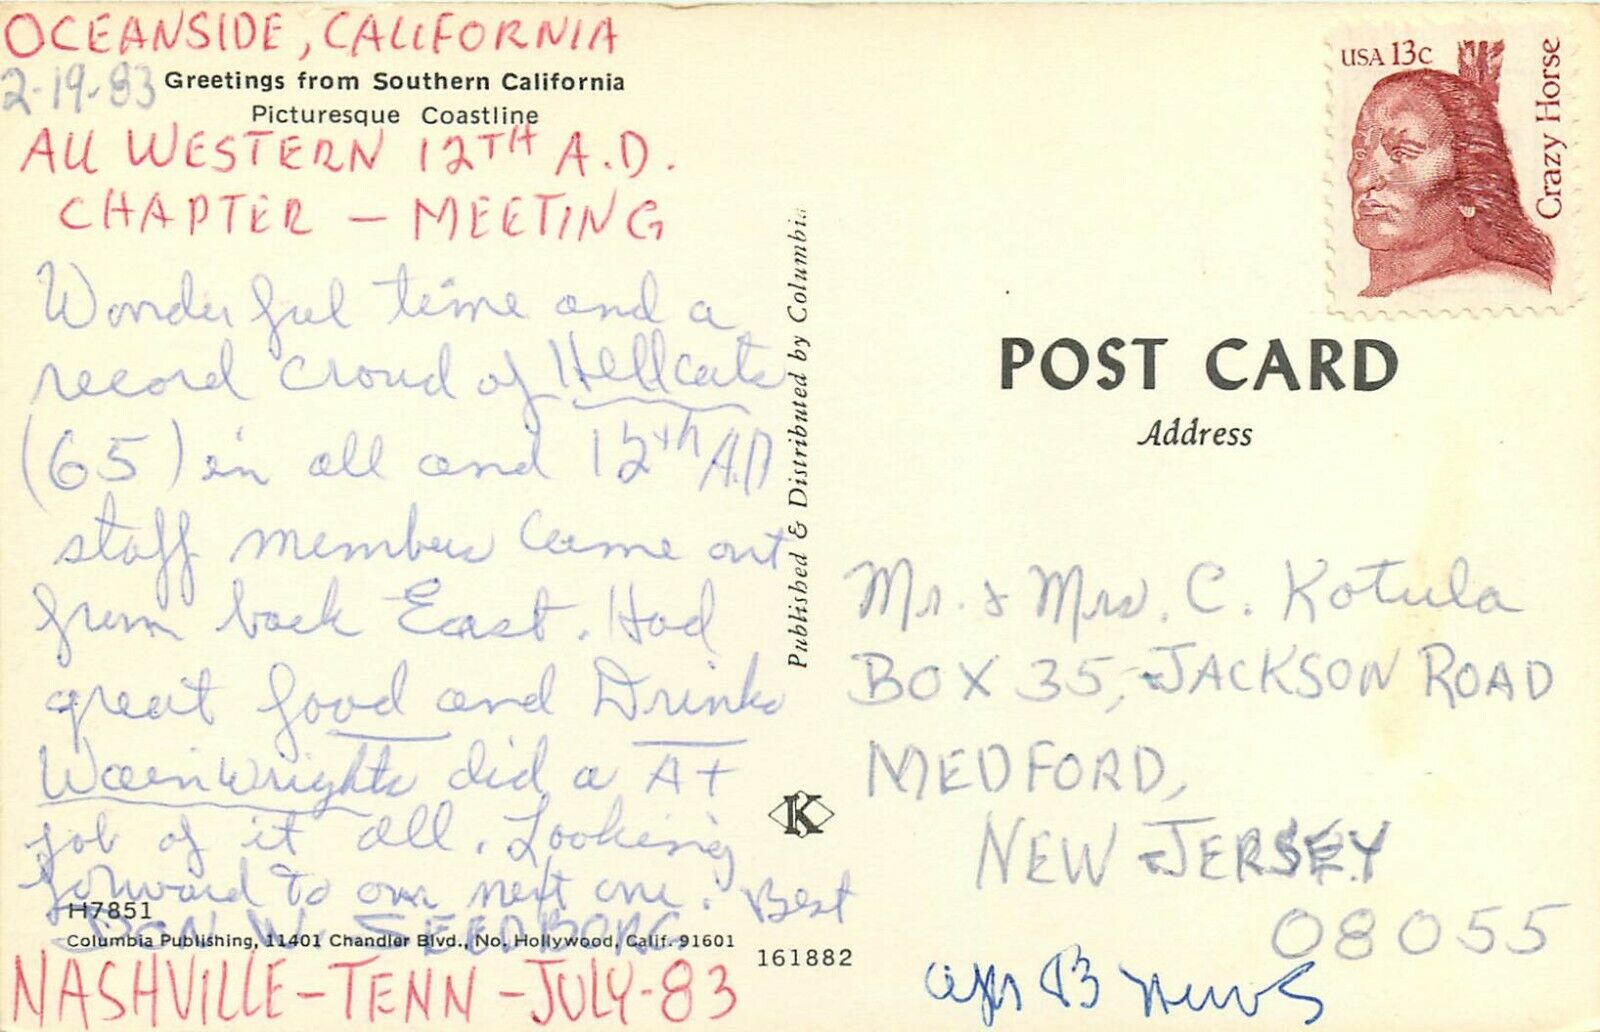 OCEANSIDE, CALIFORNIA
2-19-83
Greetings from Southern California
Picturesque Coastline
ALL WESTERN 12TH A.D.
CHAPTER - MEETING
Wonderful time and a
record croud of Hellcats
(65) in all and 12th A.D
staff members came out
from back East. Had
great food and Drinks
Wainwrights did a A+
job of it all. Looking
forward to our next one. Best
DON W. SEEDBORG
H7851
Columbia Publishing, 11401 Chandler Blvd., No. Hollywood, Calif. 91601
161882
NASHVILLE-TENN-JULY-83
Published & Distributed by Columbia
K
USA 13c
Crazy Horse
POST CARD
Address
Mr. & Mrs. C. Kotula
BOX 35, JACKSON ROAD
MEDFORD,
NEW JERSEY
08055
83 News